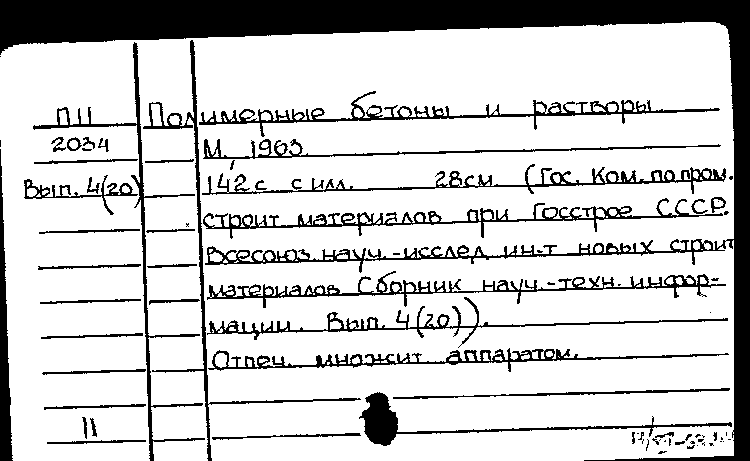 П11 Полимерные бетоны и растворы
2034 М., 1963
Вып. 4(20) 142 с. с илл. 28см. (Гос. Ком. по пром.
строит материалов при Госстрое СССР.
Всесоюз. науч.-исслед. ин-т новых строит
материалов Сборник науч.-техн. инфор-
мации. Вып. 4(20)).
Отпеч. множит аппаратом.
11